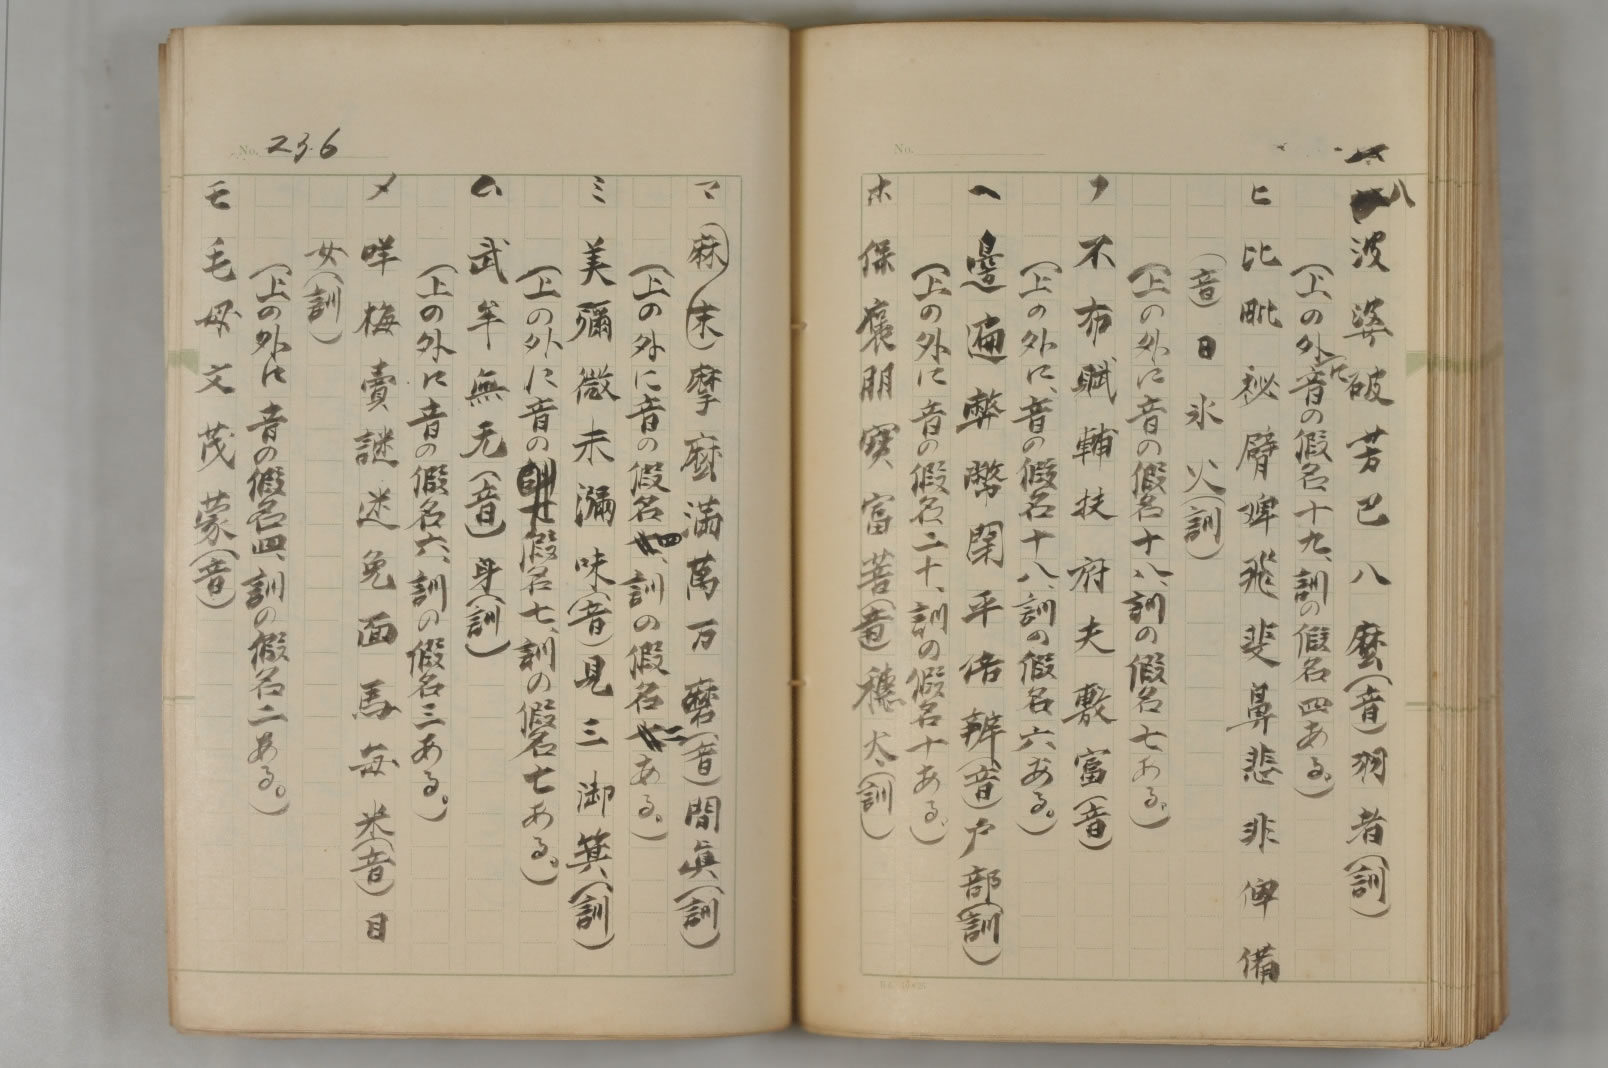 ハ 波婆破芳巴八麼(音)羽者(訓)
(上の外に音の假名十九、訓の假名四ある。)
ヒ 比毗祕臂婢飛斐鼻悲非俾備
(音)日氷火(訓)
(上の外に音の假名十八、訓の假名七ある。)
フ 不布賦輔扶府夫敷富(音)
(上の外に、音の假名十八、訓の假名六ある。)
ヘ 邊遍弊幣閇平倍辨(音)戸部(訓)
(上の外に音の假名二十、訓の假名十ある。)
ホ 保襃朋寶富菩(音)穗大(訓)
No. 236
マ (麻)(末)摩麼滿萬万磨(音)間眞(訓)
(上の外に音の假名四、訓の假名二ある。)
ミ 美彌微未瀰味(音)見三御箕(訓)
(上の外に音の假名七、訓の假名七ある。)
ム 武牟無无(音)身(訓)
(上の外に音の假名六、訓の假名三ある。)
メ 咩梅賣謎迷免面馬毎米(音)目
女(訓)
(上の外に音の假名四、訓の假名二ある。)
モ 毛母文茂蒙(音)
No.